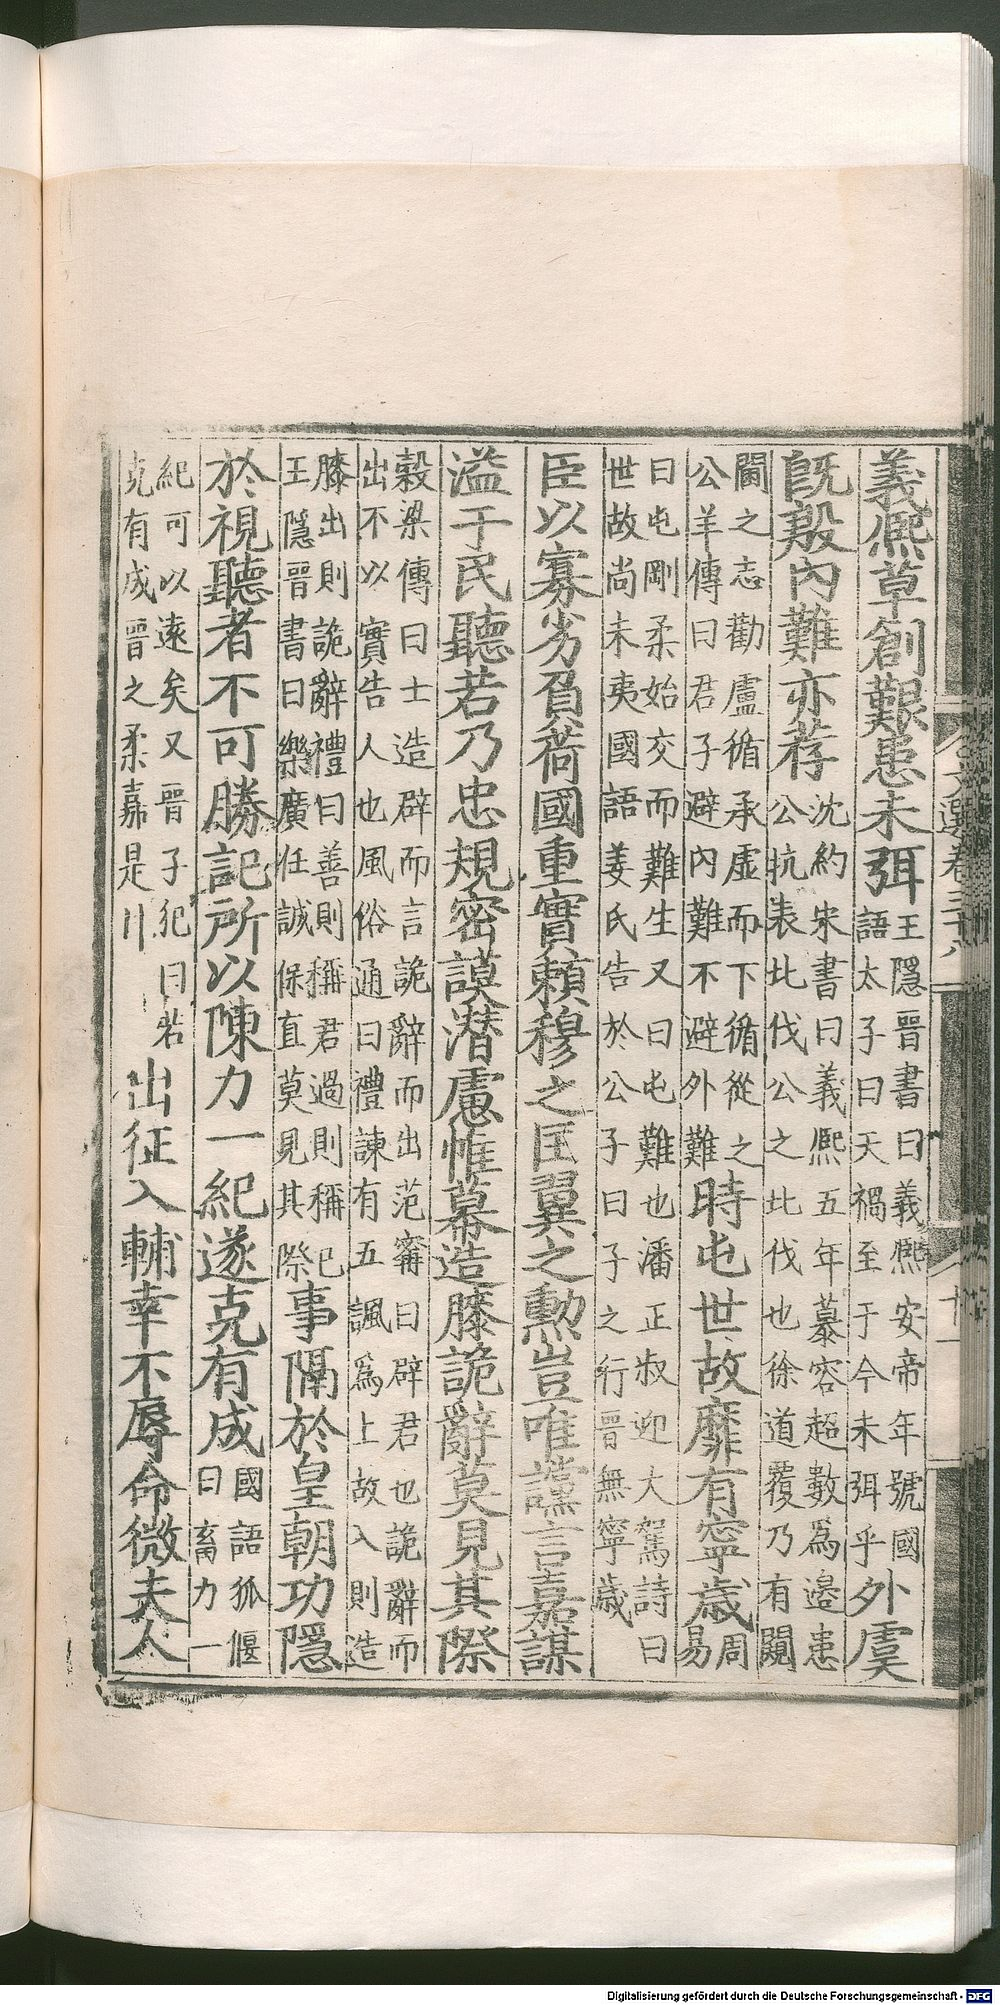 義熈草創艱患未弭王隱晉書曰義熈安帝年號國語太子曰天禍至于今未弭乎外虞
旣殷內難亦荐沈約宋書曰義熈五年慕容超數爲邊患公抗表北伐公之北伐也徐道覆乃有闚
闚之志勸盧循承虛而下循從之公羊傳曰君子避內難不避外難時屯世故靡有寧歲周易
曰屯剛柔始交而難生又曰屯難也潘正叔迎大駕詩曰世故尚未夷國語姜氏告於公子曰子之行晉無寧歲
臣以寡劣負荷國重實賴穆之匡翼之勳豈唯讜言嘉謀
溢于民聽若乃忠規密謨潛慮帷幕造膝詭辭莫見其際
穀梁傳曰士造辟而言詭辭而出范甯曰辟君也詭辭而出不以實告人也風俗通曰禮諫有五諷爲上故入則造
膝出則詭辭禮曰善則稱君過則稱己王隱晉書曰樂廣任誠保直莫見其際事隔於皇朝功隱
於視聽者不可勝記所以陳力一紀遂克有成國語狐偃曰畜力一
紀可以遠矣又晉子犯曰若克有成晉之柔嘉是川出征入輔幸不辱命微夫人
文選卷三十八
十一
Digitalisierung gefördert durch die Deutsche Forschungsgemeinschaft - DFG